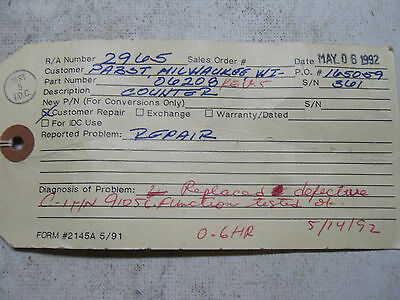 R/A Number 2965 Sales Order # Date MAY 06 1992
Customer PABST, MILWAUKEE WI- P.O.# 165059
Part Number 06208 REV.5 S/N 361
Description COUNTER
New P/N (For Conversions Only) S/N
Customer Repair Exchange Warranty/Dated
For IDC Use
Reported Problem: REPAIR
Diagnosis of Problem: Replaced defective
C-1 9105C. Function tested ok.
0.6HR 5/14/92
FORM #2145A 5/91
TEST
5
I.D.C.